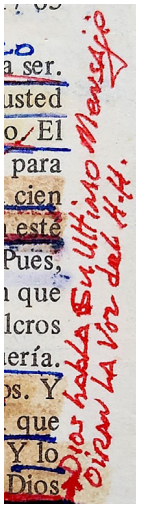 a ser.
usted
o. El
para
cien
esté
Pues,
que
lcros
ería.
os. Y
que
Y lo
Dios
Dios habla Su Ultimo Mensaje
Oiran La Voz del H.H.